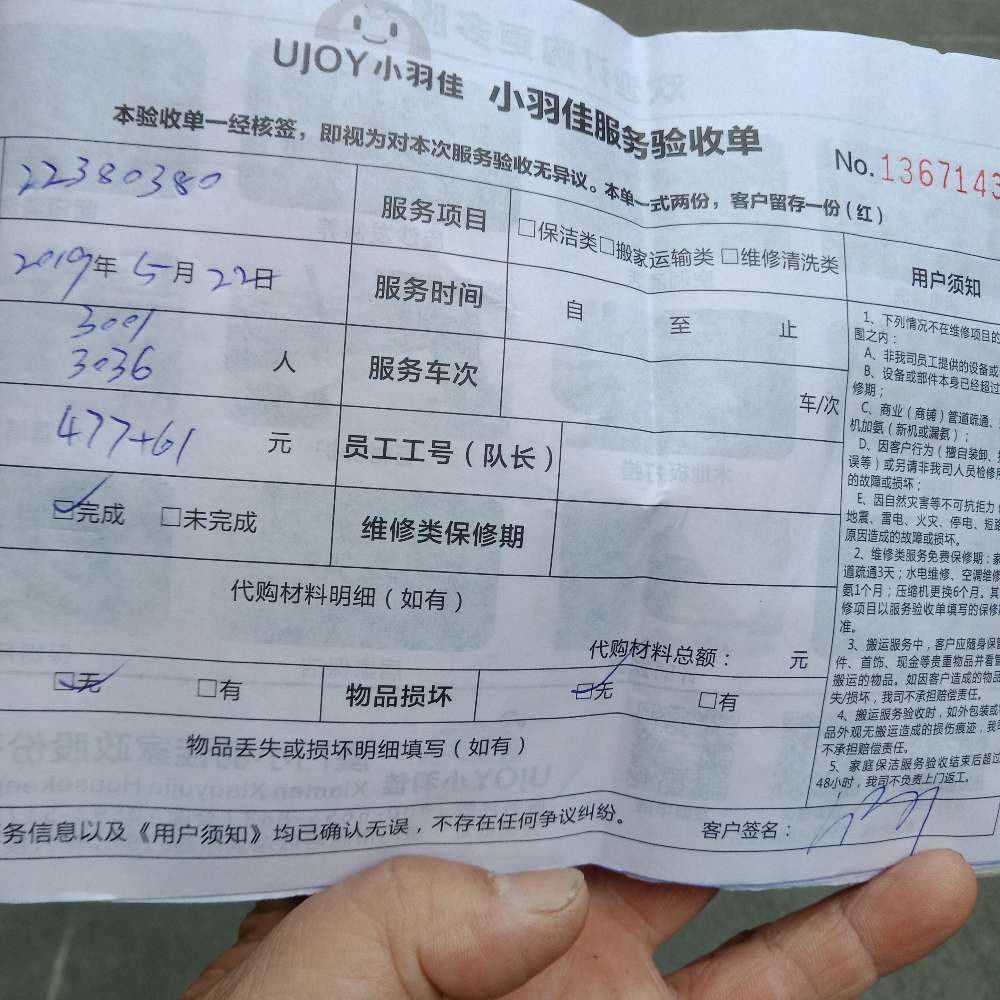 UJOY小羽佳 小羽佳服务验收单
本验收单一经核签，即视为对本次服务验收无异议。本单一式两份，客户留存一份（红）
No.1367143
22380380 服务项目 □保洁类□搬家运输类 □维修清洗类
2019年 5月 22日 服务时间 自 至 止
3001
3036 人 服务车次 车/次
477+61 元 员工工号（队长）
□完成 □未完成 维修类保修期
代购材料明细（如有）
代购材料总额： 元
□无 □有 物品损坏 □无 □有
物品丢失或损坏明细填写（如有）
务信息以及《用户须知》均已确认无误，不存在任何争议纠纷。 客户签名：
用户须知
1、下列情况不在维修项目的
围之内：
A、非我司员工提供的设备或
B、设备或部件本身已经超过
修期；
C、商业（商铺）管道疏通、
机加氨（新机或漏氨）；
D、因客户行为（擅自装卸、
误等）或另请非我司人员检修
的故障或损坏；
E、因自然灾害等不可抗拒力
地震、雷电、火灾、停电、短路
原因造成的故障或损坏。
2、维修类服务免费保修期：家
道疏通3天；水电维修、空调维修
氨1个月；压缩机更换6个月。其
修项目以服务验收单填写的保修
准。
3、搬运服务中，客户应随身保管
件、首饰、现金等贵重物品并看管
搬运的物品。如因客户造成的物品
失/损坏，我司不承担赔偿责任。
4、搬运服务验收时，如外包装或
品外观无搬运造成的损伤痕迹，我司
不承担赔偿责任。
5、家庭保洁服务验收结束后超过
48小时，我司不负责上门返工。